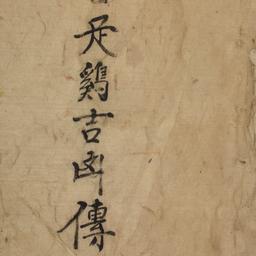 疋鷄吉凶傳